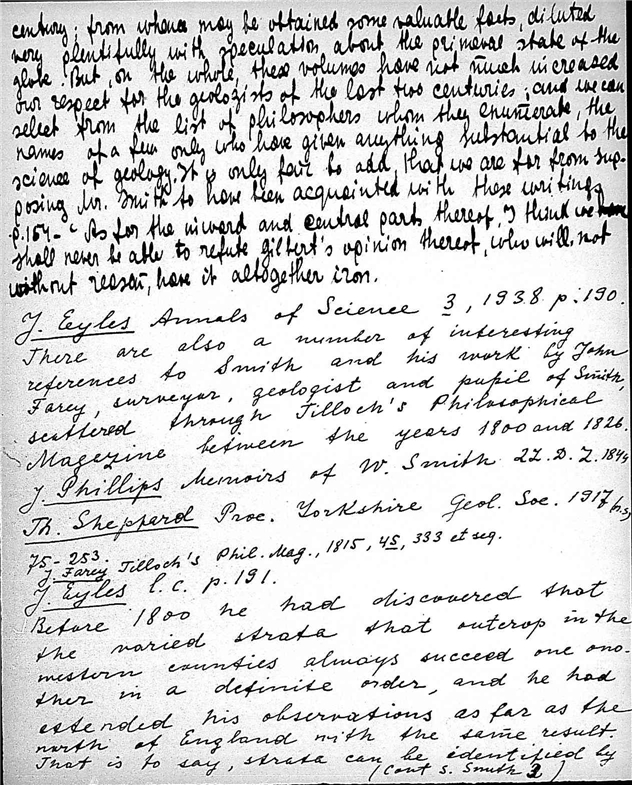 century; from whence may be obtained some valuable facts, diluted
very plentifully with speculation, about the primeval state of the
globe. But, on the whole, these volumes have not much increased
our respect for the geologists of the last two centuries; and we can
select from the list of philosophers whom they enumerate, the
names of a few only who have given anything substantial to the
science of geology. It is only fair to add, that we are far from sup-
posing Mr. Smith to have been acquainted with these writings
p. 157- " As for the inward and central parts thereof, I think we
shall never be able to refute Gilbert's opinion thereof, who will not
without reason, have it altogether iron.
J. Eyles Annals of Science 3, 1938. p. 190.
There are also a number of interesting
references to Smith and his work by John
Farey, surveyor, geologist and pupil of Smith,
scattered through Tilloch's Philosophical
Magezine between the years 1800 and 1826.
J. Phillips Memoirs of W. Smith LL.D. L. 1844
Th. Sheppard Proc. Yorkshire Geol. Soc. 1917 (n.s)
75-253.
J. Farey Tilloch's Phil. Mag., 1815, 45, 333 et seq.
J. Eyles l.c. p. 191.
Before 1800 he had discovered that
the varied strata that outcrop in the
western counties always succeed one ano-
ther in a definite order, and he had
extended his observations as far as the
north of England with the same result.
That is to say, strata can be identified by
(Cont s. Smith 2)